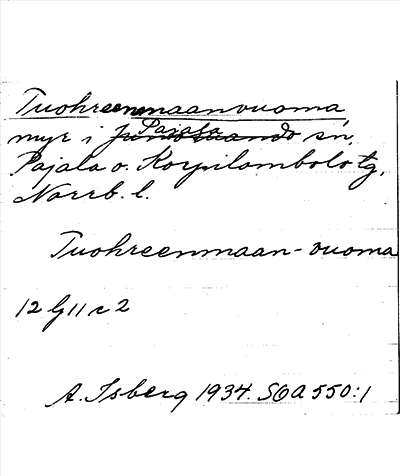 Tuohreenmaanvuoma,
Pajala
myr i Junosuando sn,
Pajala o. Korpilombolo tg,
Norrb. l.
Tuohreenmaan-vuoma
12 G 11 c 2
A. Isberg 1934. SOA 550:1